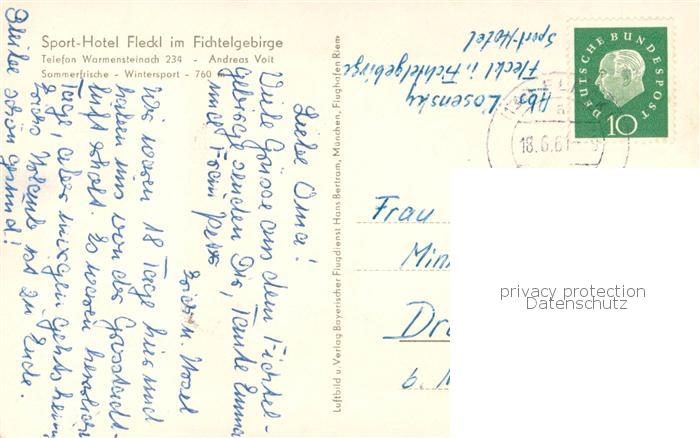 Sport-Hotel Fleckl im Fichtelgebirge
Telefon Warmensteinach 234 - Andreas Voit
Sommerfrische - Wintersport - 760 m
Liebe Oma!
Viele Grüsse aus dem Fichtel-
gebirge senden Dir, Tante Emma
und Frau
Wir waren 18 Tage hier und
haben uns von der Grosstadt-
luft erholt. Es waren herrliche
Tage, aber morgen gehts heim,
Urlaub ist zu Ende.
Bleibe schön gesund!
Luftbild u. Verlag Bayerischer Flugdienst Hans Bertram, München, Flughafen Riem
Abs. Losensky
Fleckl i. Fichtelgebirge
Sport-Hotel
DEUTSCHE BUNDESPOST
10
18.6.61
Frau
Dr
b.
privacy protection
Datenschutz